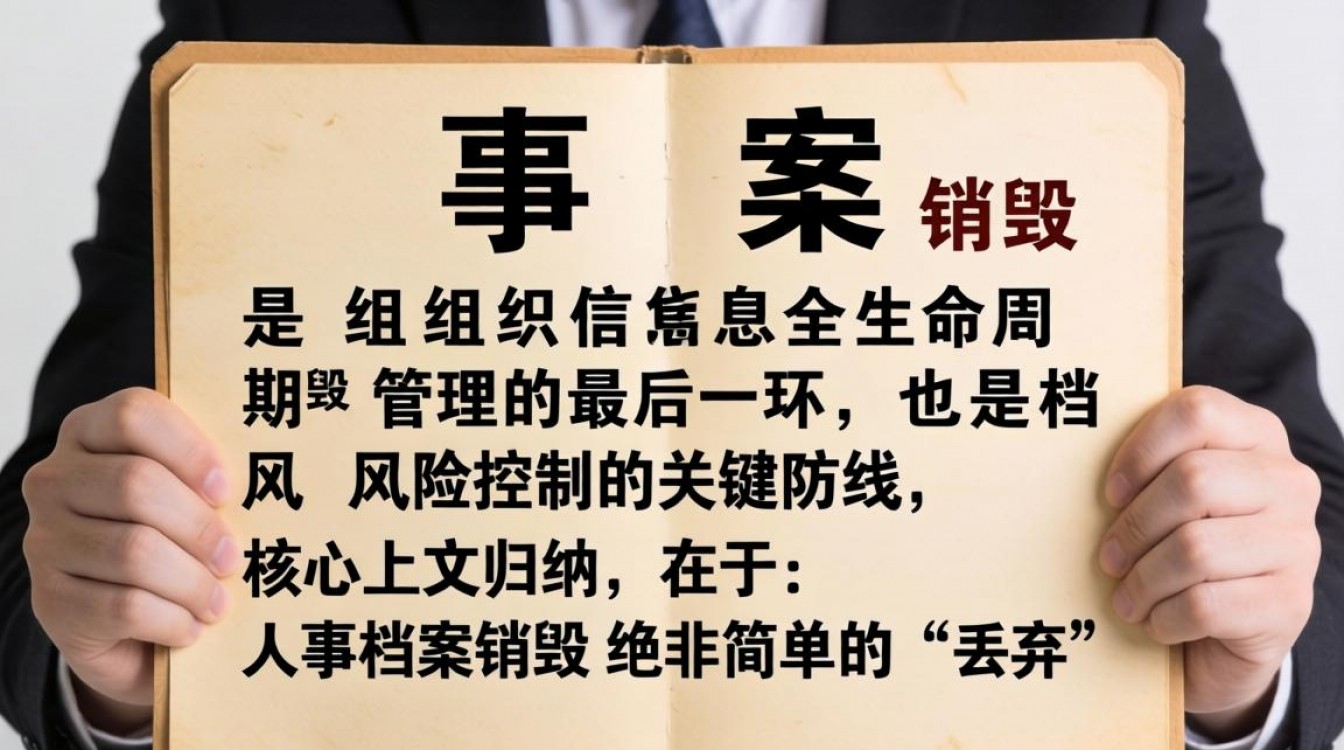 事 案 销毁
是 组组织信息全生命周
期毁 管理的最后一环，也是档
风 风险控制的关键防线，
核心上文归纳，在于：
人事档案销毁 绝非简单的“丢弃”